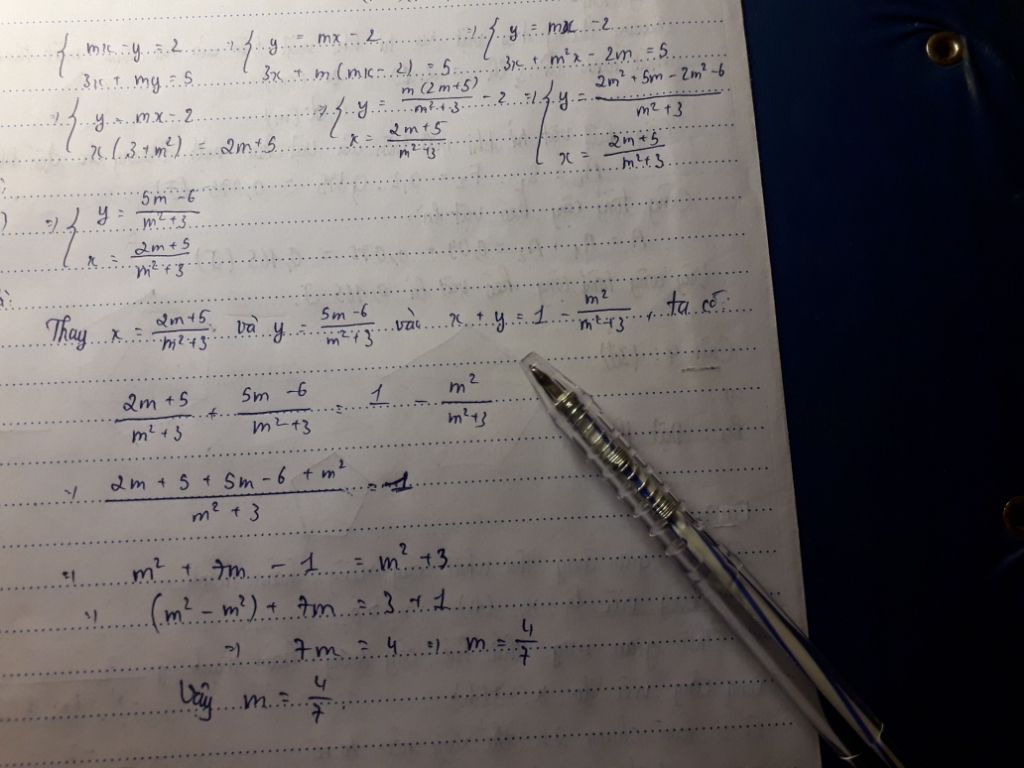 { mx - y = 2 ⇒ { y = mx - 2 ⇒ { y = mx - 2
3x + my = 5 3x + m(mx - 2) = 5 3x + m²x - 2m = 5
⇒ { y = mx - 2 ⇒ { y = m(2m+5)/m²+3 - 2 ⇒ { y = 2m² + 5m - 2m² - 6/m² + 3
x(3 + m²) = 2m + 5 x = 2m + 5/m² + 3 x = 2m + 5/m² + 3
⇒ { y = 5m - 6/m² + 3
x = 2m + 5/m² + 3
Thay x = 2m + 5/m² + 3 và y = 5m - 6/m² + 3 vào x + y = 1 - m²/m² + 3, ta có:
2m + 5/m² + 3 + 5m - 6/m² + 3 = 1 - m²/m² + 3
⇒ 2m + 5 + 5m - 6 + m²/m² + 3 = 1
⇒ m² + 7m - 1 = m² + 3
⇒ (m² - m²) + 7m = 3 + 1
⇒ 7m = 4 ⇒ m = 4/7
Vậy m = 4/7.